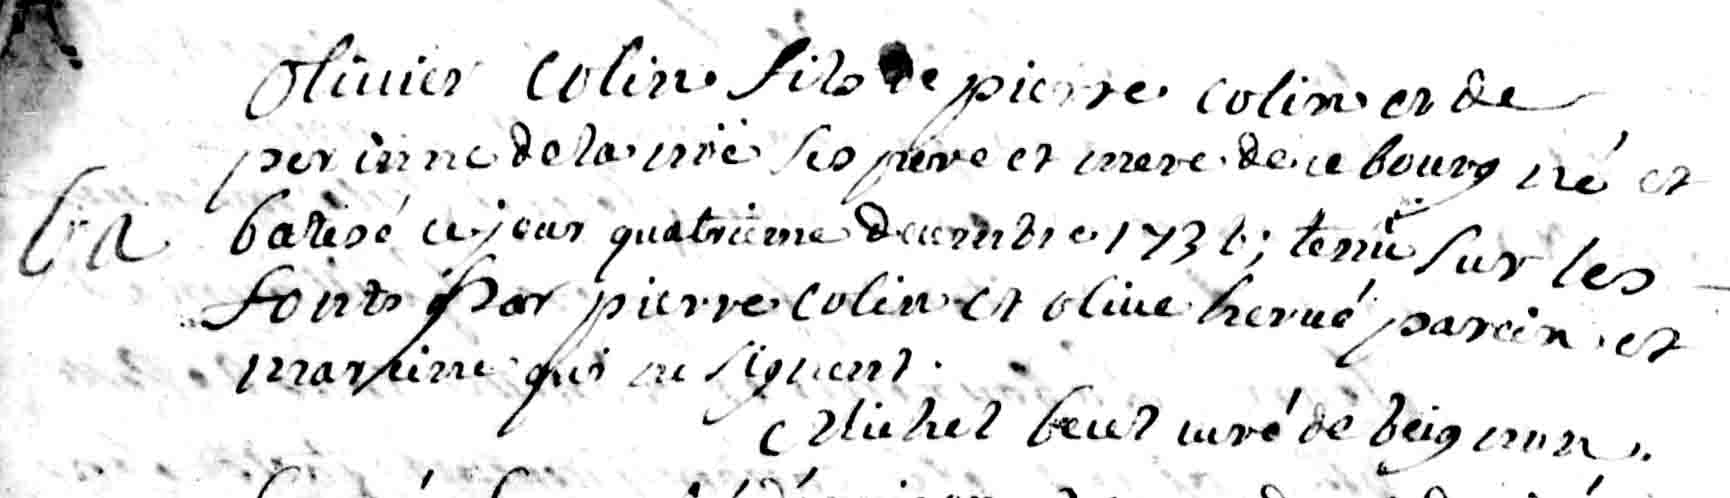 olivier colin fils de pierre colin et de
perinne de la noë ses pere et mere de ce bourg né et
ba
batisé ce jour quatrieme decembre 173 tenu sur les
fonts par pierre colin et olive hervé parein et
mareine qui ne signent.
Michel beut curé de beignon.